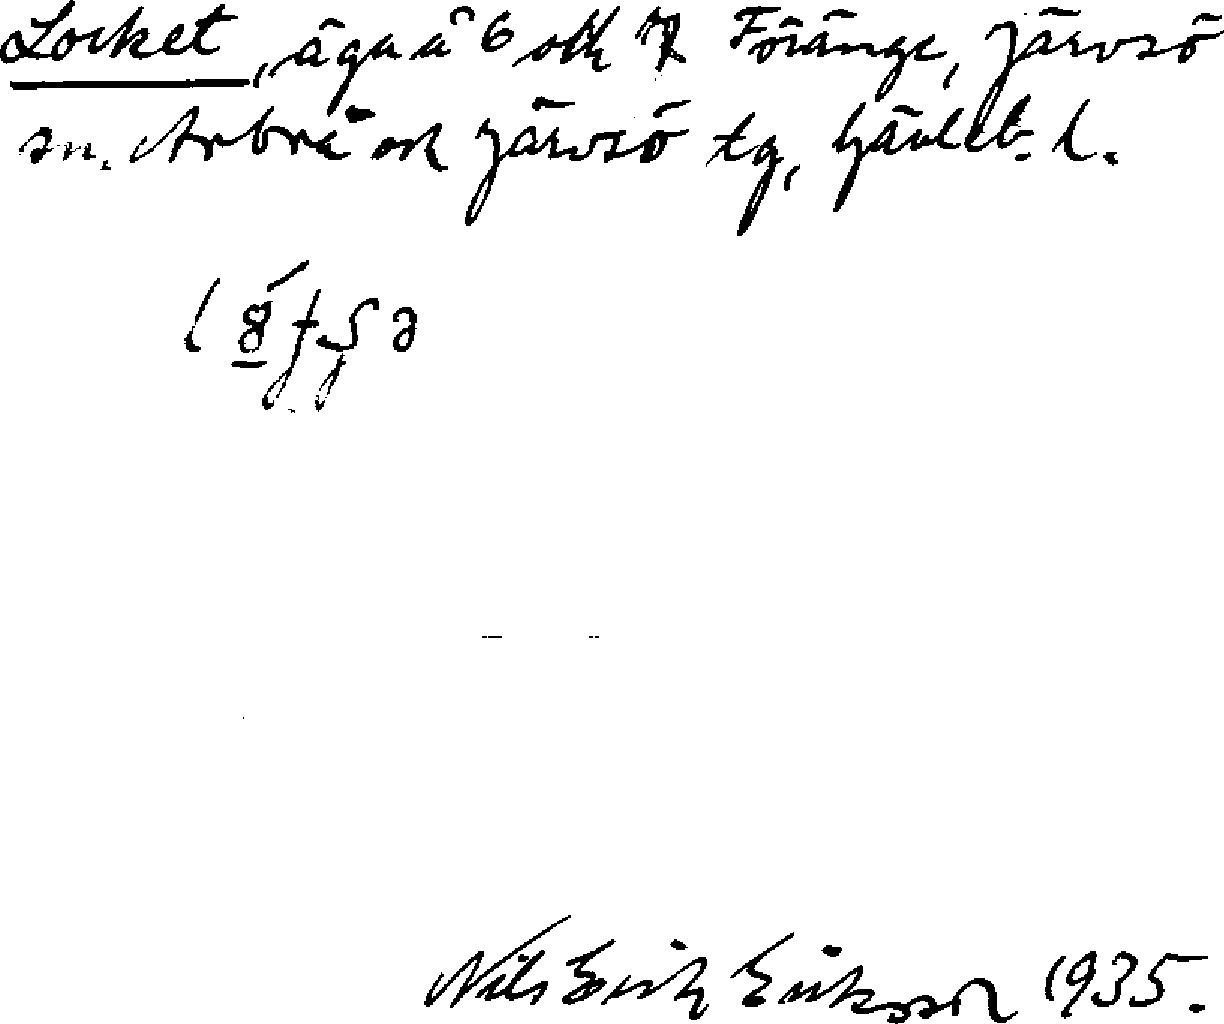 Locket, äga å 6 och 7 Föränge, Järvsö
sn. Arbrå och Järvsö tg, Gävleb. l.
Nils Erik Eriksson 1935.